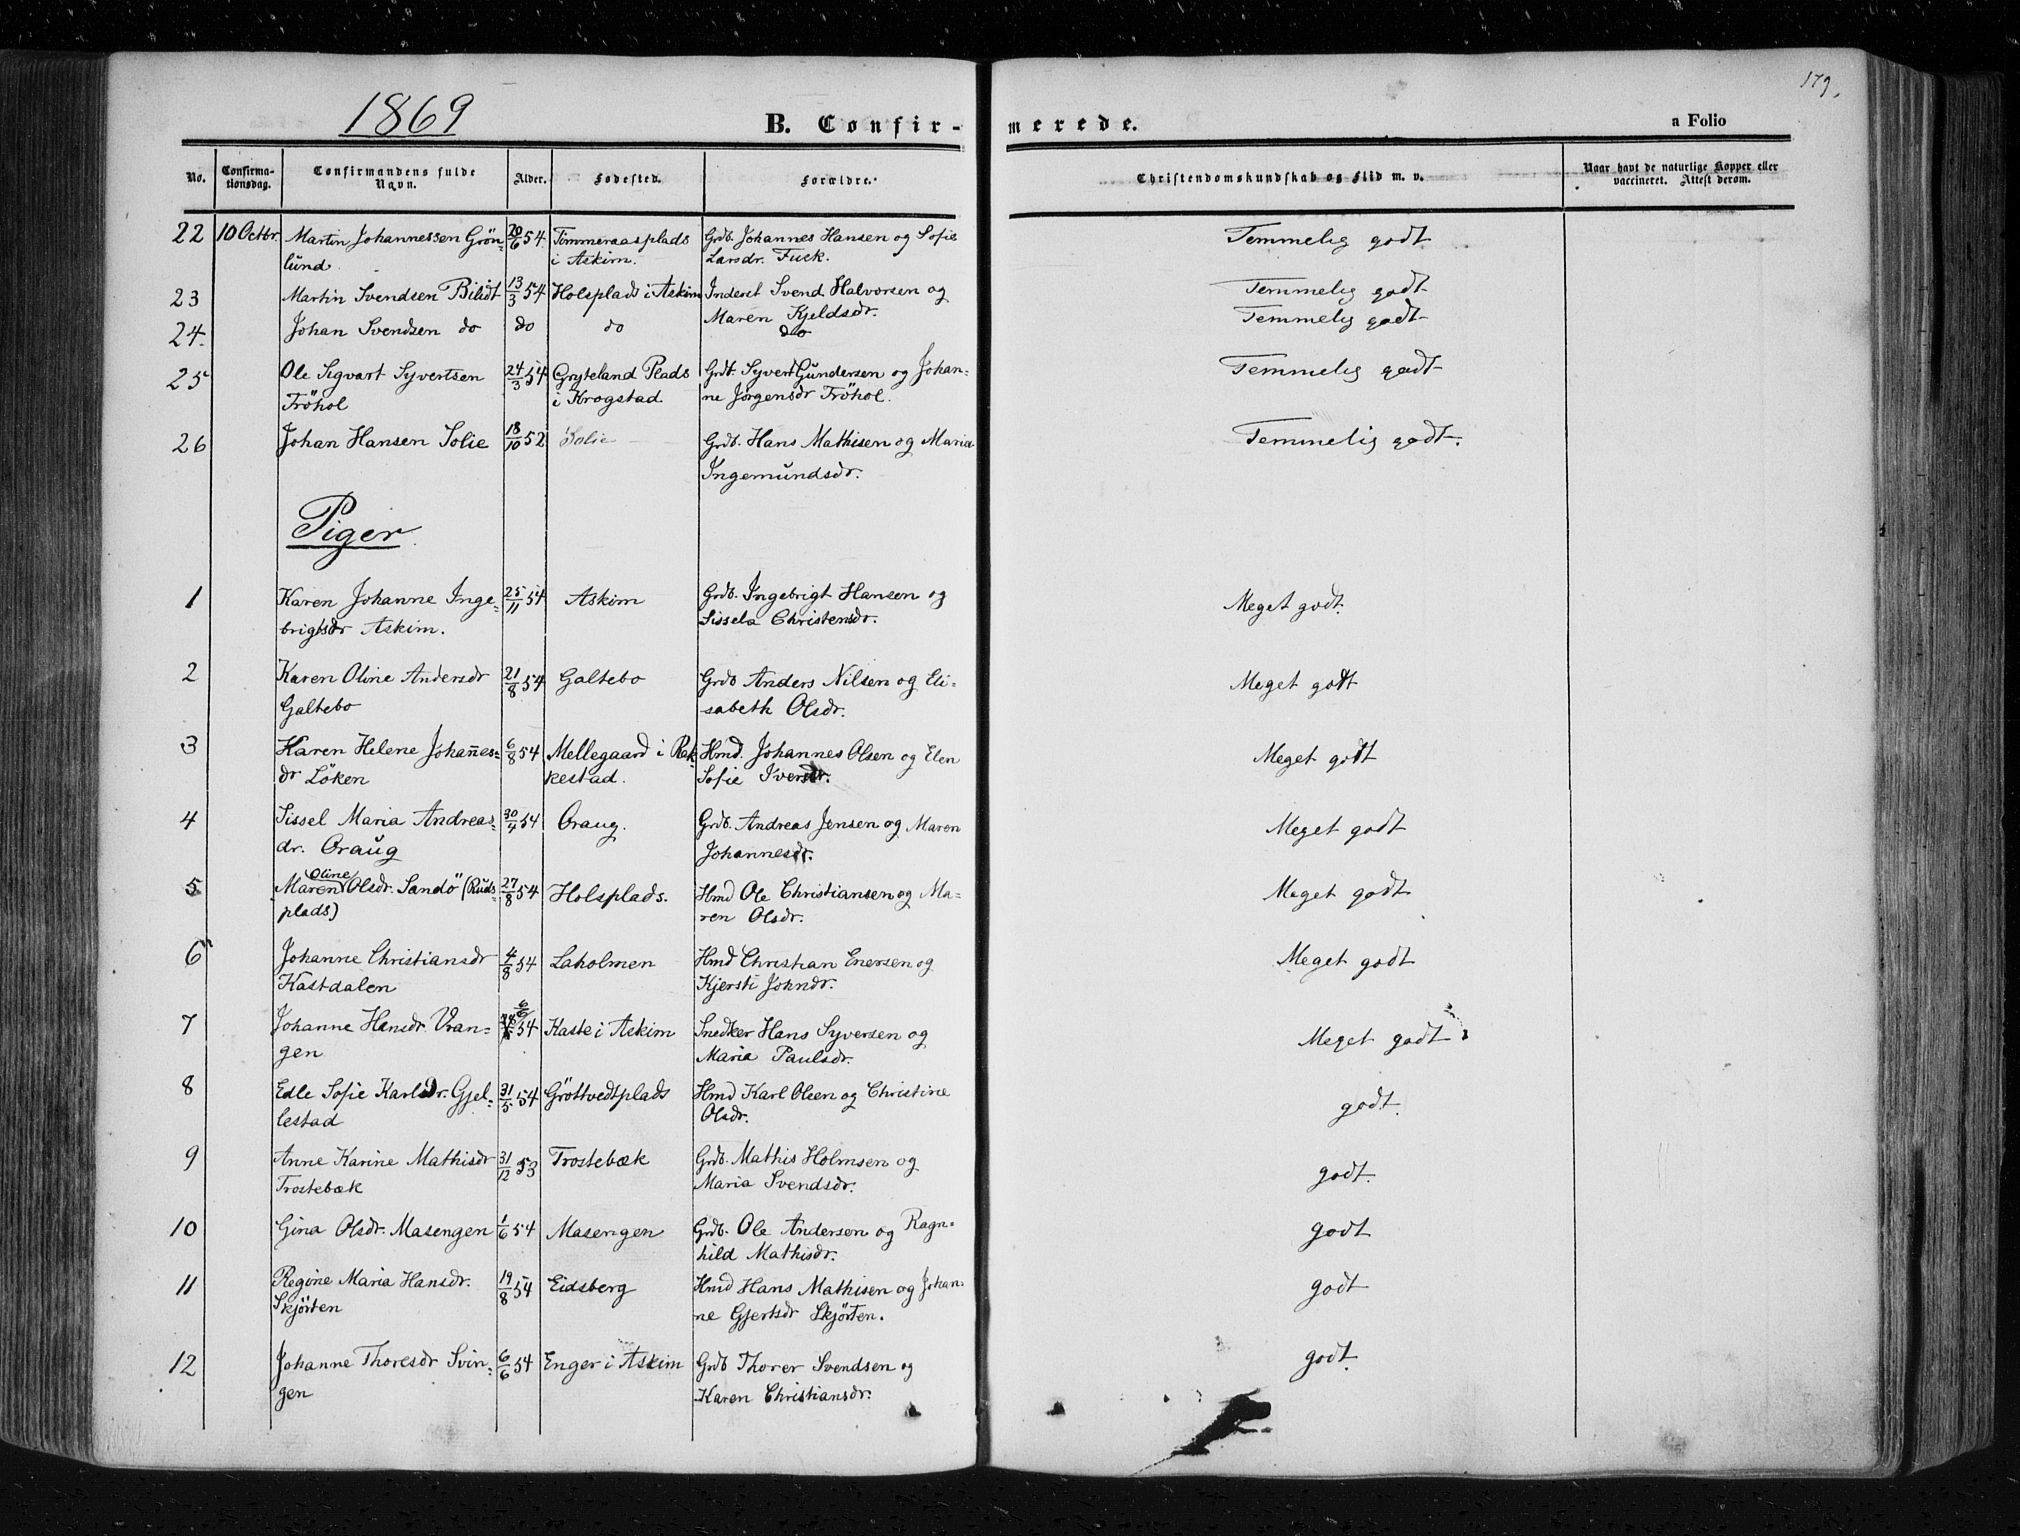 179.
1869
B. Confir-
merede.
a Folio
No.
Confirma-
tionsdag.
Confirmandens fulde
Navn.
Alder.
Fødested.
Forældre.
Christendomskundskab og Flid m. v.
Naar havt de naturlige Kopper eller
vaccineret. Attest derom.
22 10 Octbr. Martin Johannessen Grön- 20/6 54. Timmeraasplads Grdb. Johannes Hansen og Sofie Temmelig godt
lund. i Askim. Larsdr. Fusk.
23 Martin Svendsen Bilidt 13/3 54 Holsplads i Askim Inderst Svend Halvorsen og Temmelig godt
Maren Kjeldsdr.
24. Johan Svendsen do do do do Temmelig godt
25 Ole Sigvart Syvertsen 24/3 54 Gryteland Plads Grdb Syvert Gundersen og Johan- Temmelig godt
Tröhol i Krogstad. ne Jörgensdr Tröhol.
26 Johan Hansen Solie 18/10 52 Solie Grdb. Hans Mathisen og Maria Temmelig godt.
Ingemundsdr.
Piger
1 Karen Johanne Inge- 25/11 54 Askim Grdb. Ingebrigt Hansen og Meget godt.
brigtsdr Askim. Sissela Christensdr.
2 Karen Oline Andersdr 21/8 54 Galtebo Grdb Anders Nilsen og Eli- Meget godt
Galtebo sabeth Olsdr.
3 Karen Helene Johannes- 6/8 54 Mellegaard i Rak- Hmd. Johannes Olsen og Elen Meget godt
dr Löken kestad. Sofie Iversdr.
4 Sissel Maria Andreas- 30/4 54 Oraug. Grdb. Andreas Jensen og Maren Meget godt
dr. Oraug Johannesdr.
5 Maren Oline Olsdr. Sandö (Ruds- 27/8 54 Holsplads. Hmd Ole Christiansen og Ma- Meget godt
plads) ren Olsdr.
6 Johanne Christiansdr 4/8 54 Laholmen Hmd Christian Enersen og Meget godt
Kastdalen Kjersti Johndr.
7 Johanne Hansdr. Vran- 6/6 54 Kaste i Askim Snedker Hans Syversen og Meget godt
gen Maria Paulsdr.
8 Edle Sofie Karlsdr. Gjel- 31/5 54 Gröttvedtplads Hmd Karl Olsen og Christine godt.
lestad Olsdr.
9 Anne Karine Mathisdr 31/12 53 Trostebæk Grdb. Mathis Holmsen og godt.
Trostebæk Maria Svendsdr.
10 Gina Olsdr. Masengen 1/6 54 Masengen Grdb. Ole Andersen og Ragn- godt
hild Mathisdr.
11 Regine Maria Hansdr. 19/8 54 Eidsberg Hmd Hans Mathisen og Johan- godt
Skjörten ne Gjertsdr Skjörten.
12 Johanne Thoresdr Svin- 6/6 54 Enger i Askim Grdb Thorer Svendsen og godt.
gen Karen Christiansdr.